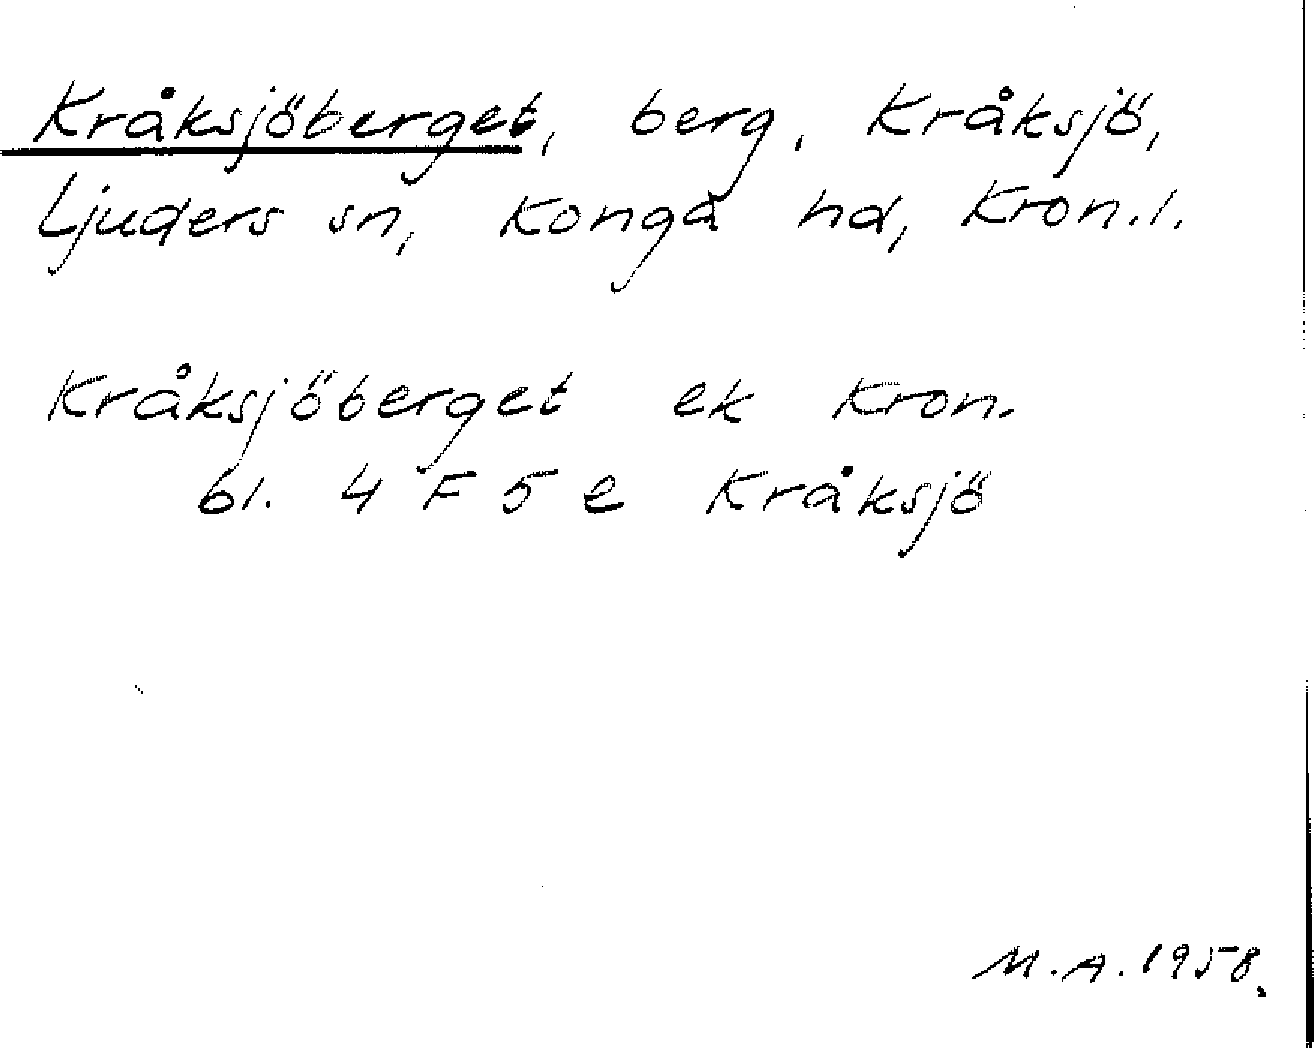 Kråksjöberget, berg, Kråksjö,
Ljuders sn, Konga hd, Kron.l.
Kråksjöberget ek Kron.
bl. 4 F 5 e Kråksjö
M.A. 1958.